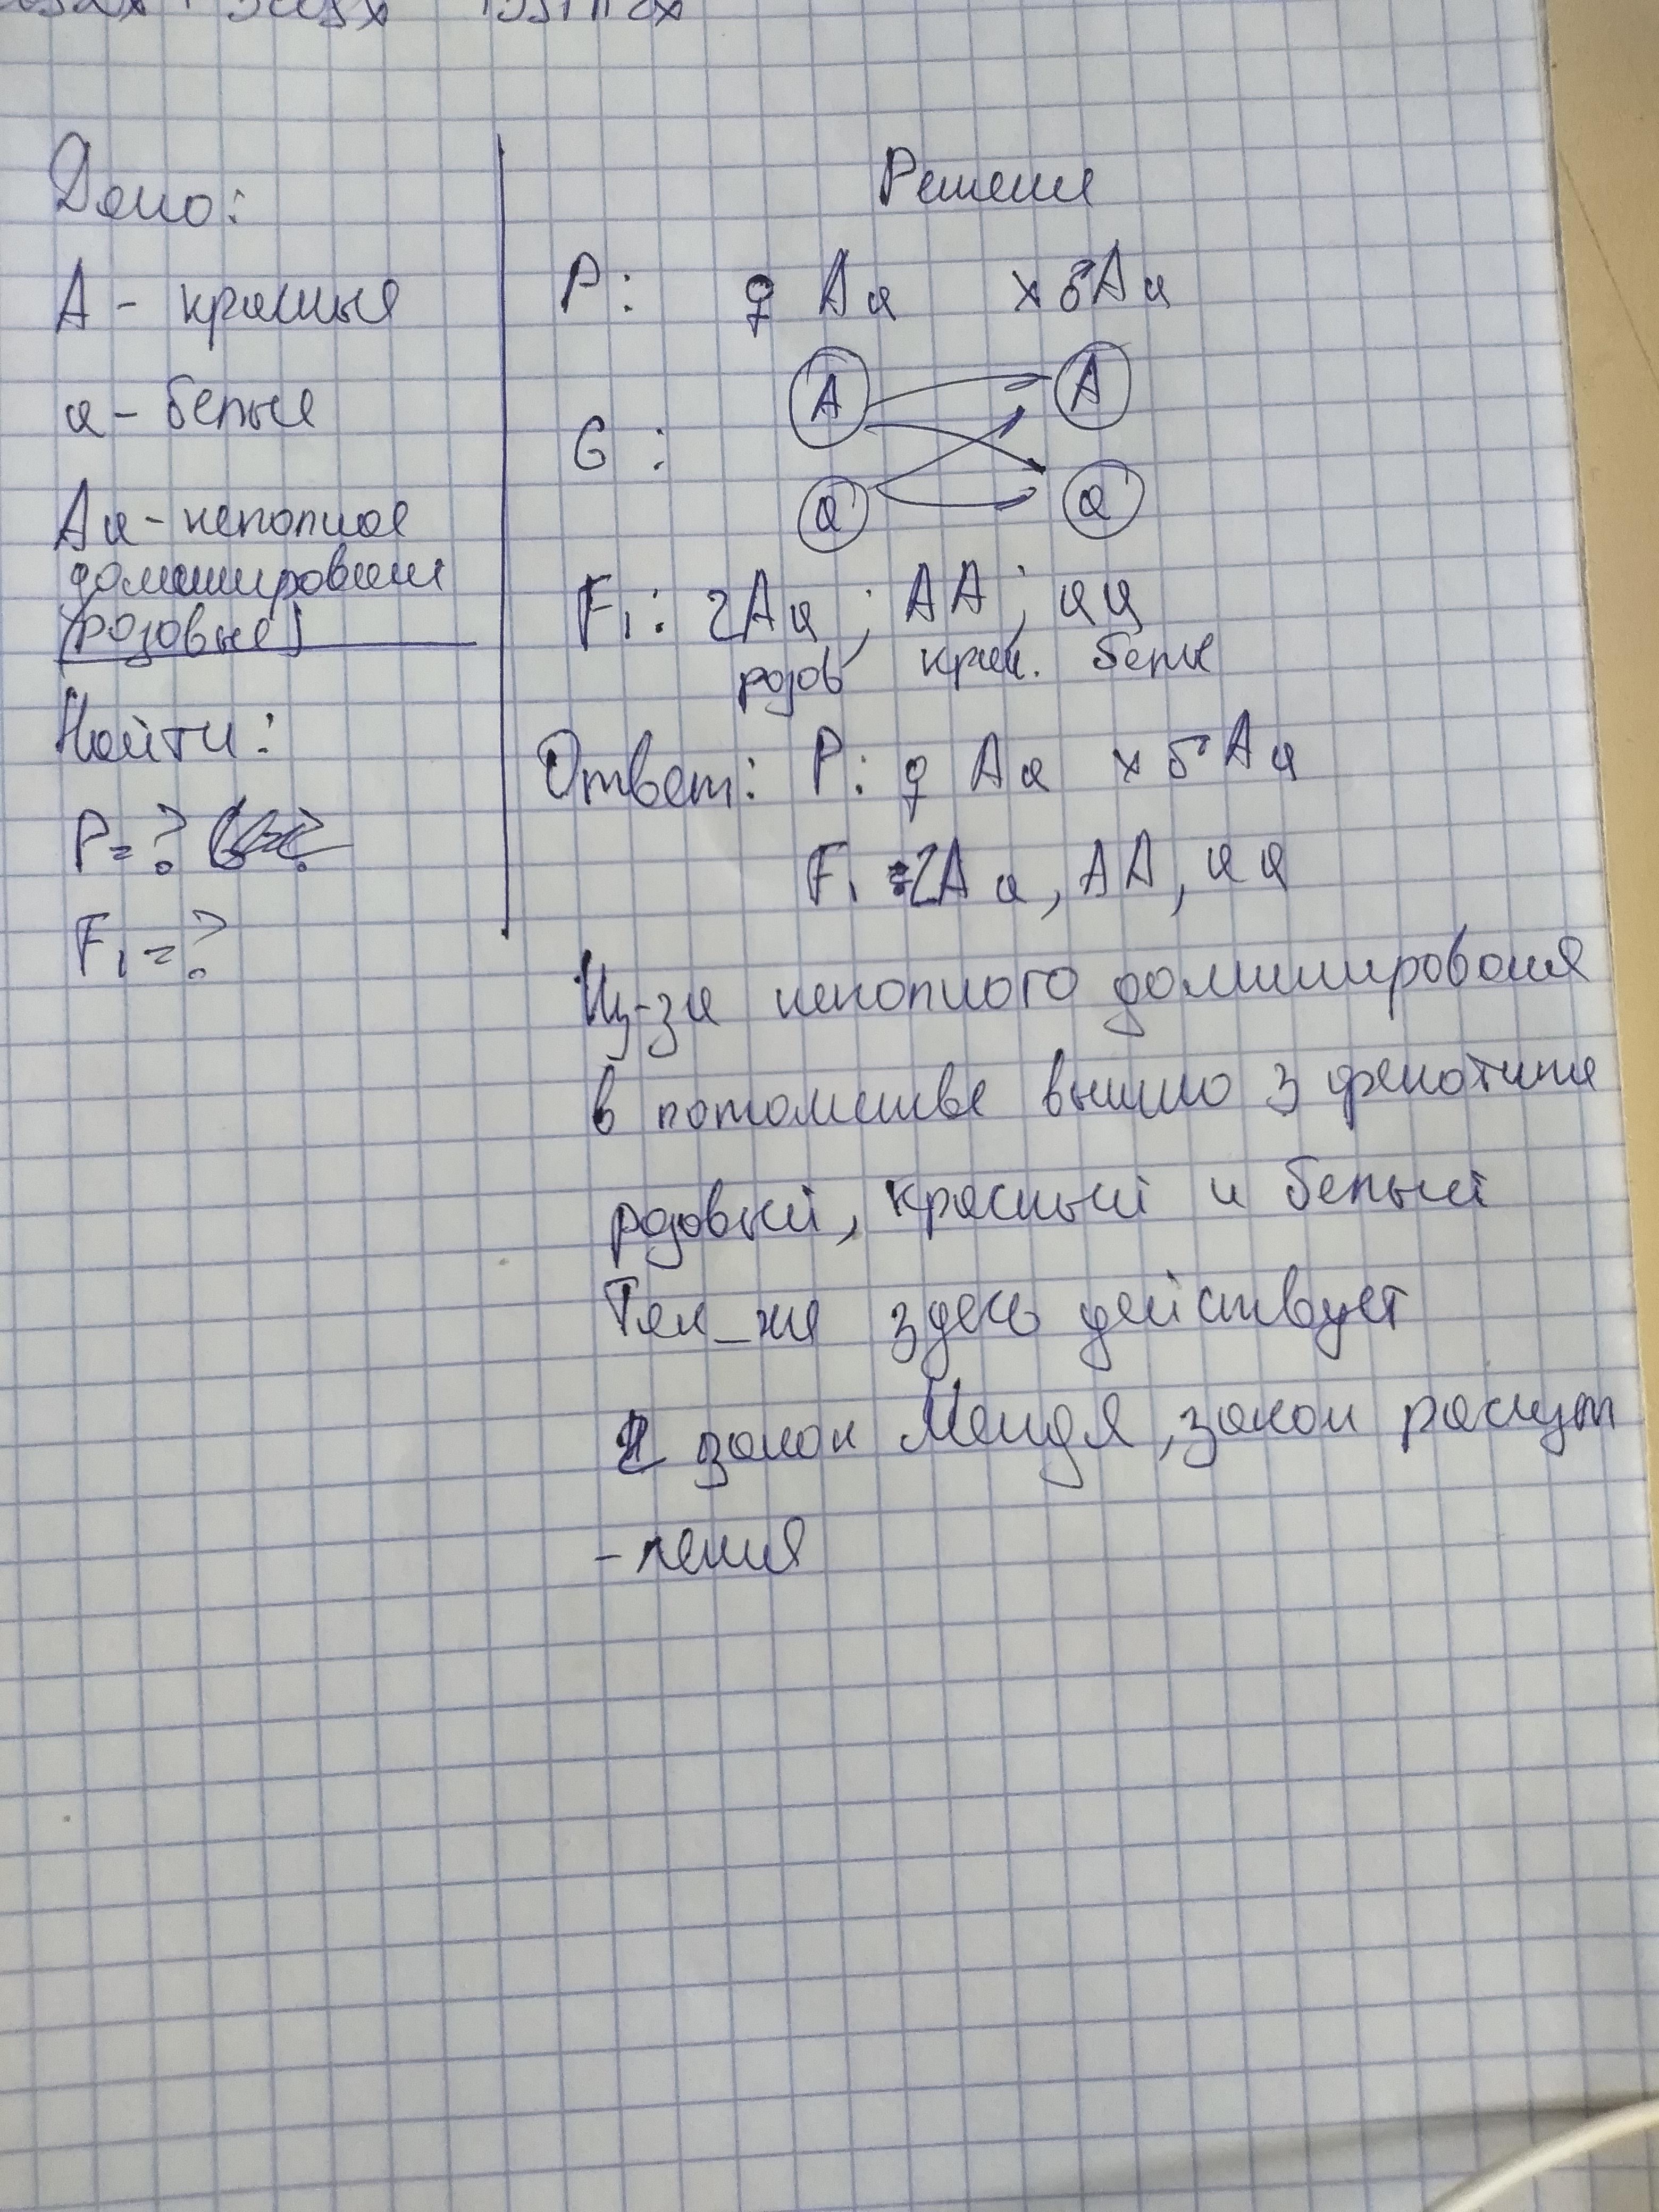 Дано:
А - красные
а - белые
Аа - неполное
доминирование
(розовые)
Найти:
P = ?
F₁ = ?
Решение
P: ♀ Аа × ♂ Аа
G: А А
а а
F₁: 2Аа ; АА ; аа
розов красн. белые
Ответ: P: ♀ Аа × ♂ Аа
F₁ = 2Аа, АА, аа
Из-за неполного доминирования
в потомстве вышло 3 фенотипа
розовый, красный и белый
Так-же здесь действует
2 закон Менделя, закон расщеп
-ления